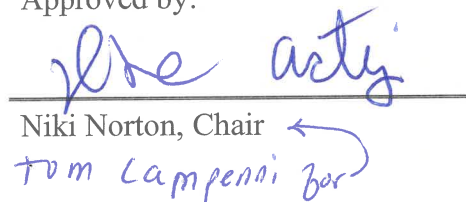 Approved by:
Niki Norton, Chair
Tom Campenni for